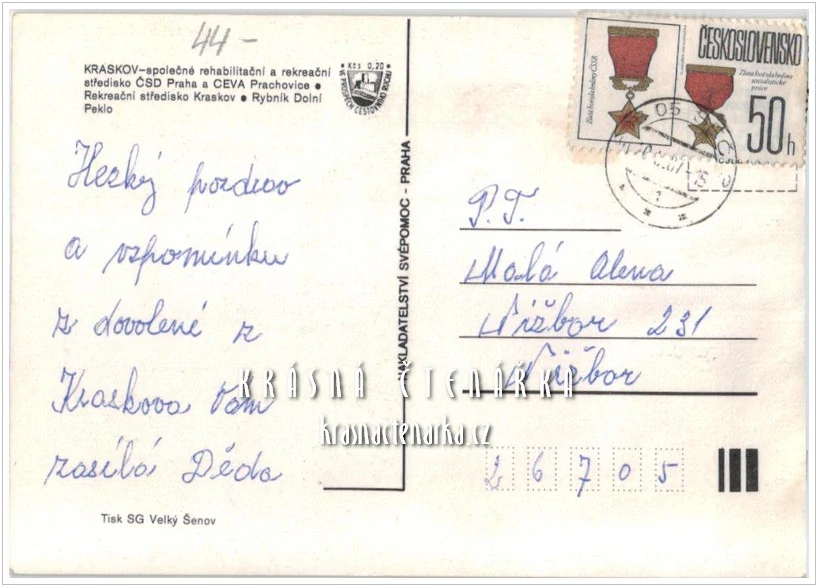 44-
KRASKOV–společné rehabilitační a rekreační
středisko ČSD Praha a CEVA Prachovice •
Rekreační středisko Kraskov • Rybník Dolní
Peklo
Kčs 0,20
VE PROSPĚCH CESTOVNÍHO RUCHU
ČESKOSLOVENSKO
Zlatá hvězda hrdiny ČSSR
Zlatá hvězda hrdiny
socialistické
práce
50h
Hezký pozdrav
a vzpomínku
z dovolené z
Kraskova Vám
zasílá Děda
NAKLADATELSTVÍ SVÉPOMOC - PRAHA
P.T.
Malá Alena
Nižbor 231
Nižbor
26705
KRÁSNÁ ČTENÁŘKA
krasnactenarka.cz
Tisk SG Velký Šenov